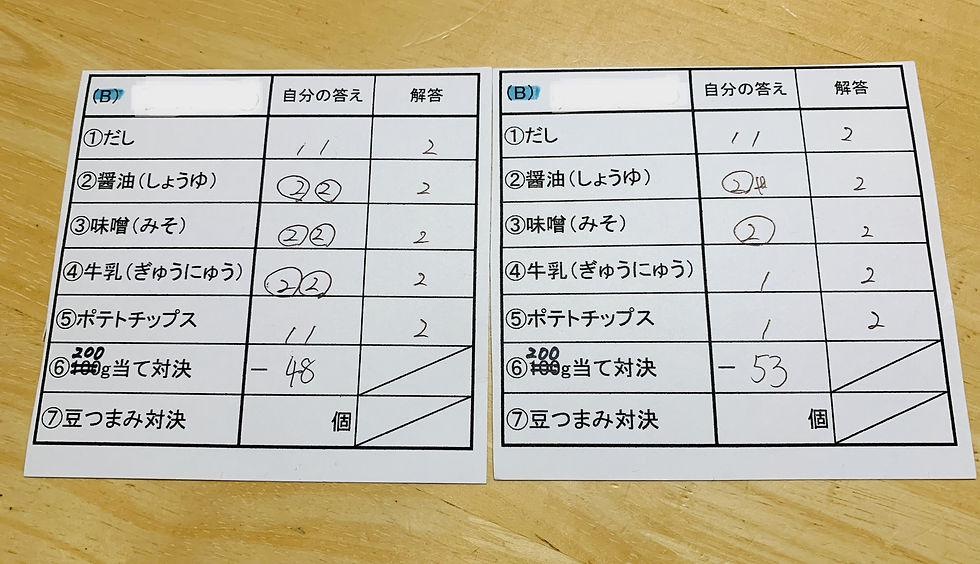 (B) 自分の答え 解答
①だし 1 1 2
②醤油(しょうゆ) ② ② 2
③味噌(みそ) ② ② 2
④牛乳(ぎゅうにゅう) ② ② 2
⑤ポテトチップス 1 1 2
⑥200g当て対決 -48
⑦豆つまみ対決 個
(B) 自分の答え 解答
①だし 1 1 2
②醤油(しょうゆ) ② 2
③味噌(みそ) ② 2
④牛乳(ぎゅうにゅう) 1 2
⑤ポテトチップス 1 2
⑥200g当て対決 -53
⑦豆つまみ対決 個